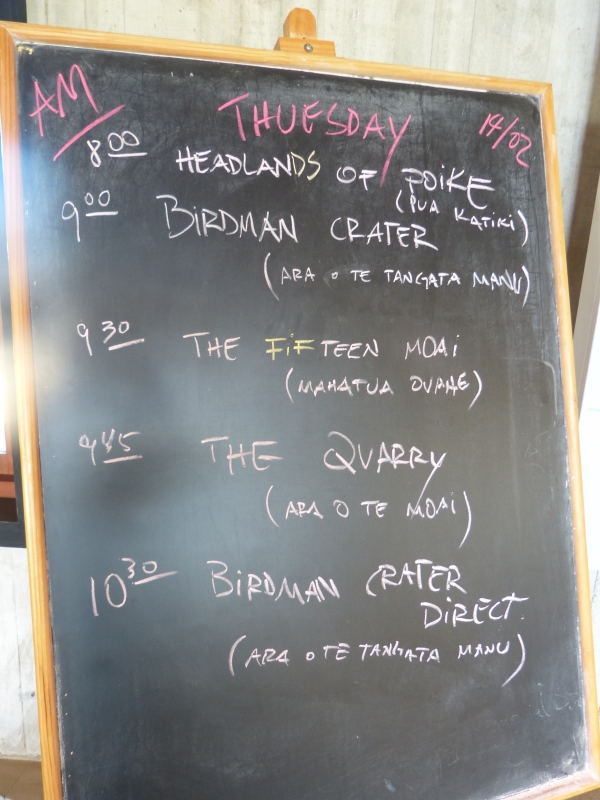 AM
THUESDAY 14/02
8 00 HEADLANDS OF POIKE
(PUA KATIKI)
9 00 BIRDMAN CRATER
(ARA O TE TANGATA MANU)
9 30 THE FIFTEEN MOAI
(MAHATUA OVAHE)
9 45 THE QUARRY
(ARA O TE MOAI)
10 30 BIRDMAN CRATER
DIRECT.
(ARA O TE TANGATA MANU)